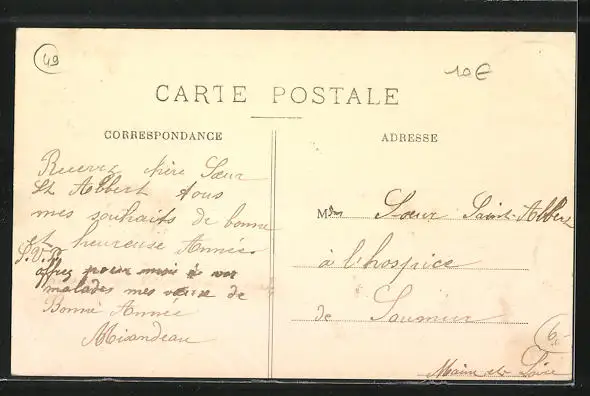 49
10€
CARTE POSTALE
CORRESPONDANCE
ADRESSE
Recevez chère Sœur
St Albert tous
mes souhaits de bonne
et heureuse Année
S.V.P.
offrez pour moi à vos
malades mes vœux de
Bonne Année
Misandeau
M Sœur Saint-Albert
à l'hospice
de Saumur
Maine et Loire